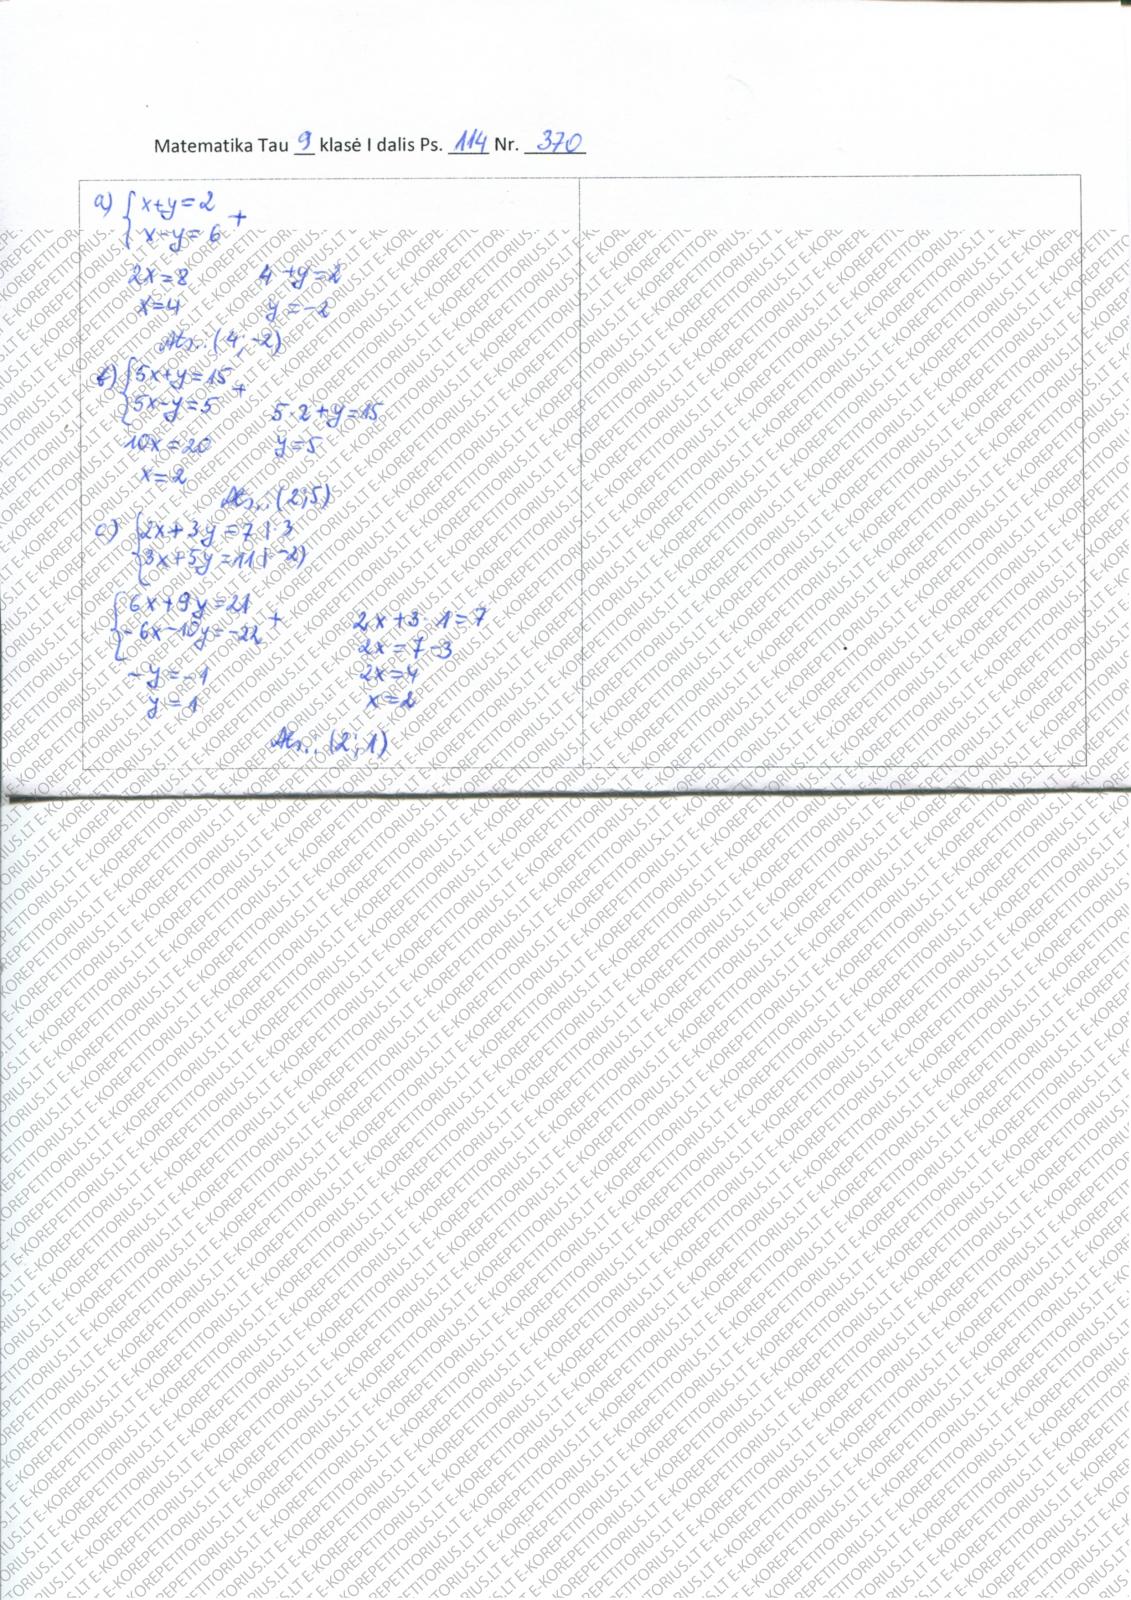 Matematika Tau 9 klasė I dalis Ps. 114 Nr. 370
a) { x+y=2
x-y=6 +
2x=8 4+y=2
x=4 y=-2
Ats.: (4;-2)
b) { 5x+y=15
5x-y=5 +
5·2+y=15
10x=20 y=5
x=2
Ats.: (2;5)
c) { 2x+3y=7 |·3
3x+5y=11 |·(-2)
{ 6x+9y=21
-6x-10y=-22 +
2x+3·1=7
2x=7-3
-y=-1 2x=4
y=1 x=2
Ats.: (2;1)
E-KOREPETITORIUS.LT